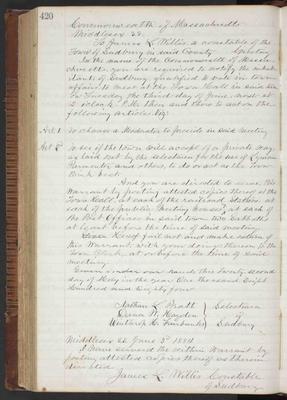 420
Commonwealth of Massachusetts
Middlesex SS.
To James L. Willis a constable of the
Town of Sudbury in said County Greeting
In the name of the Commonwealth of Massa-
chusetts you are required to notify the inhab-
itants of Sudbury, qualified to vote in town
affairs to meet at the Town Hall in said town
on Tuesday the third day of June, next at
o'clock P.M. then and there to act on the
following articles, viz:
Art 1. To choose a Moderator to preside in said meeting
Art 2. To see if the town will accept of a private way
as laid out by the selectmen for the use of
and others, to do or act as the Town
think best.
And you are directed to serve this
Warrant by posting attested copies thereof at the
Town Hall, at each of the railroad stations, at
each of the public Meeting houses, at each of
the Post Offices in said town two Sabbaths
at least before the time of said meeting.
Hereof fail not and make return of
this Warrant with your doings thereon to the
Town Clerk, at or before the time of said
meeting.
Given under our hands this twenty second
day of May in the year One thousand Eight
hundred and Eighty four
Nathan L. Pratt } Selectmen
Hayden } of
Winthrop H. Fairbanks } Sudbury
Middlesex SS June 3d 1884
I have served the within Warrant by
posting attested copies thereof as therein
directed
James L. Willis Constable
of Sudbury